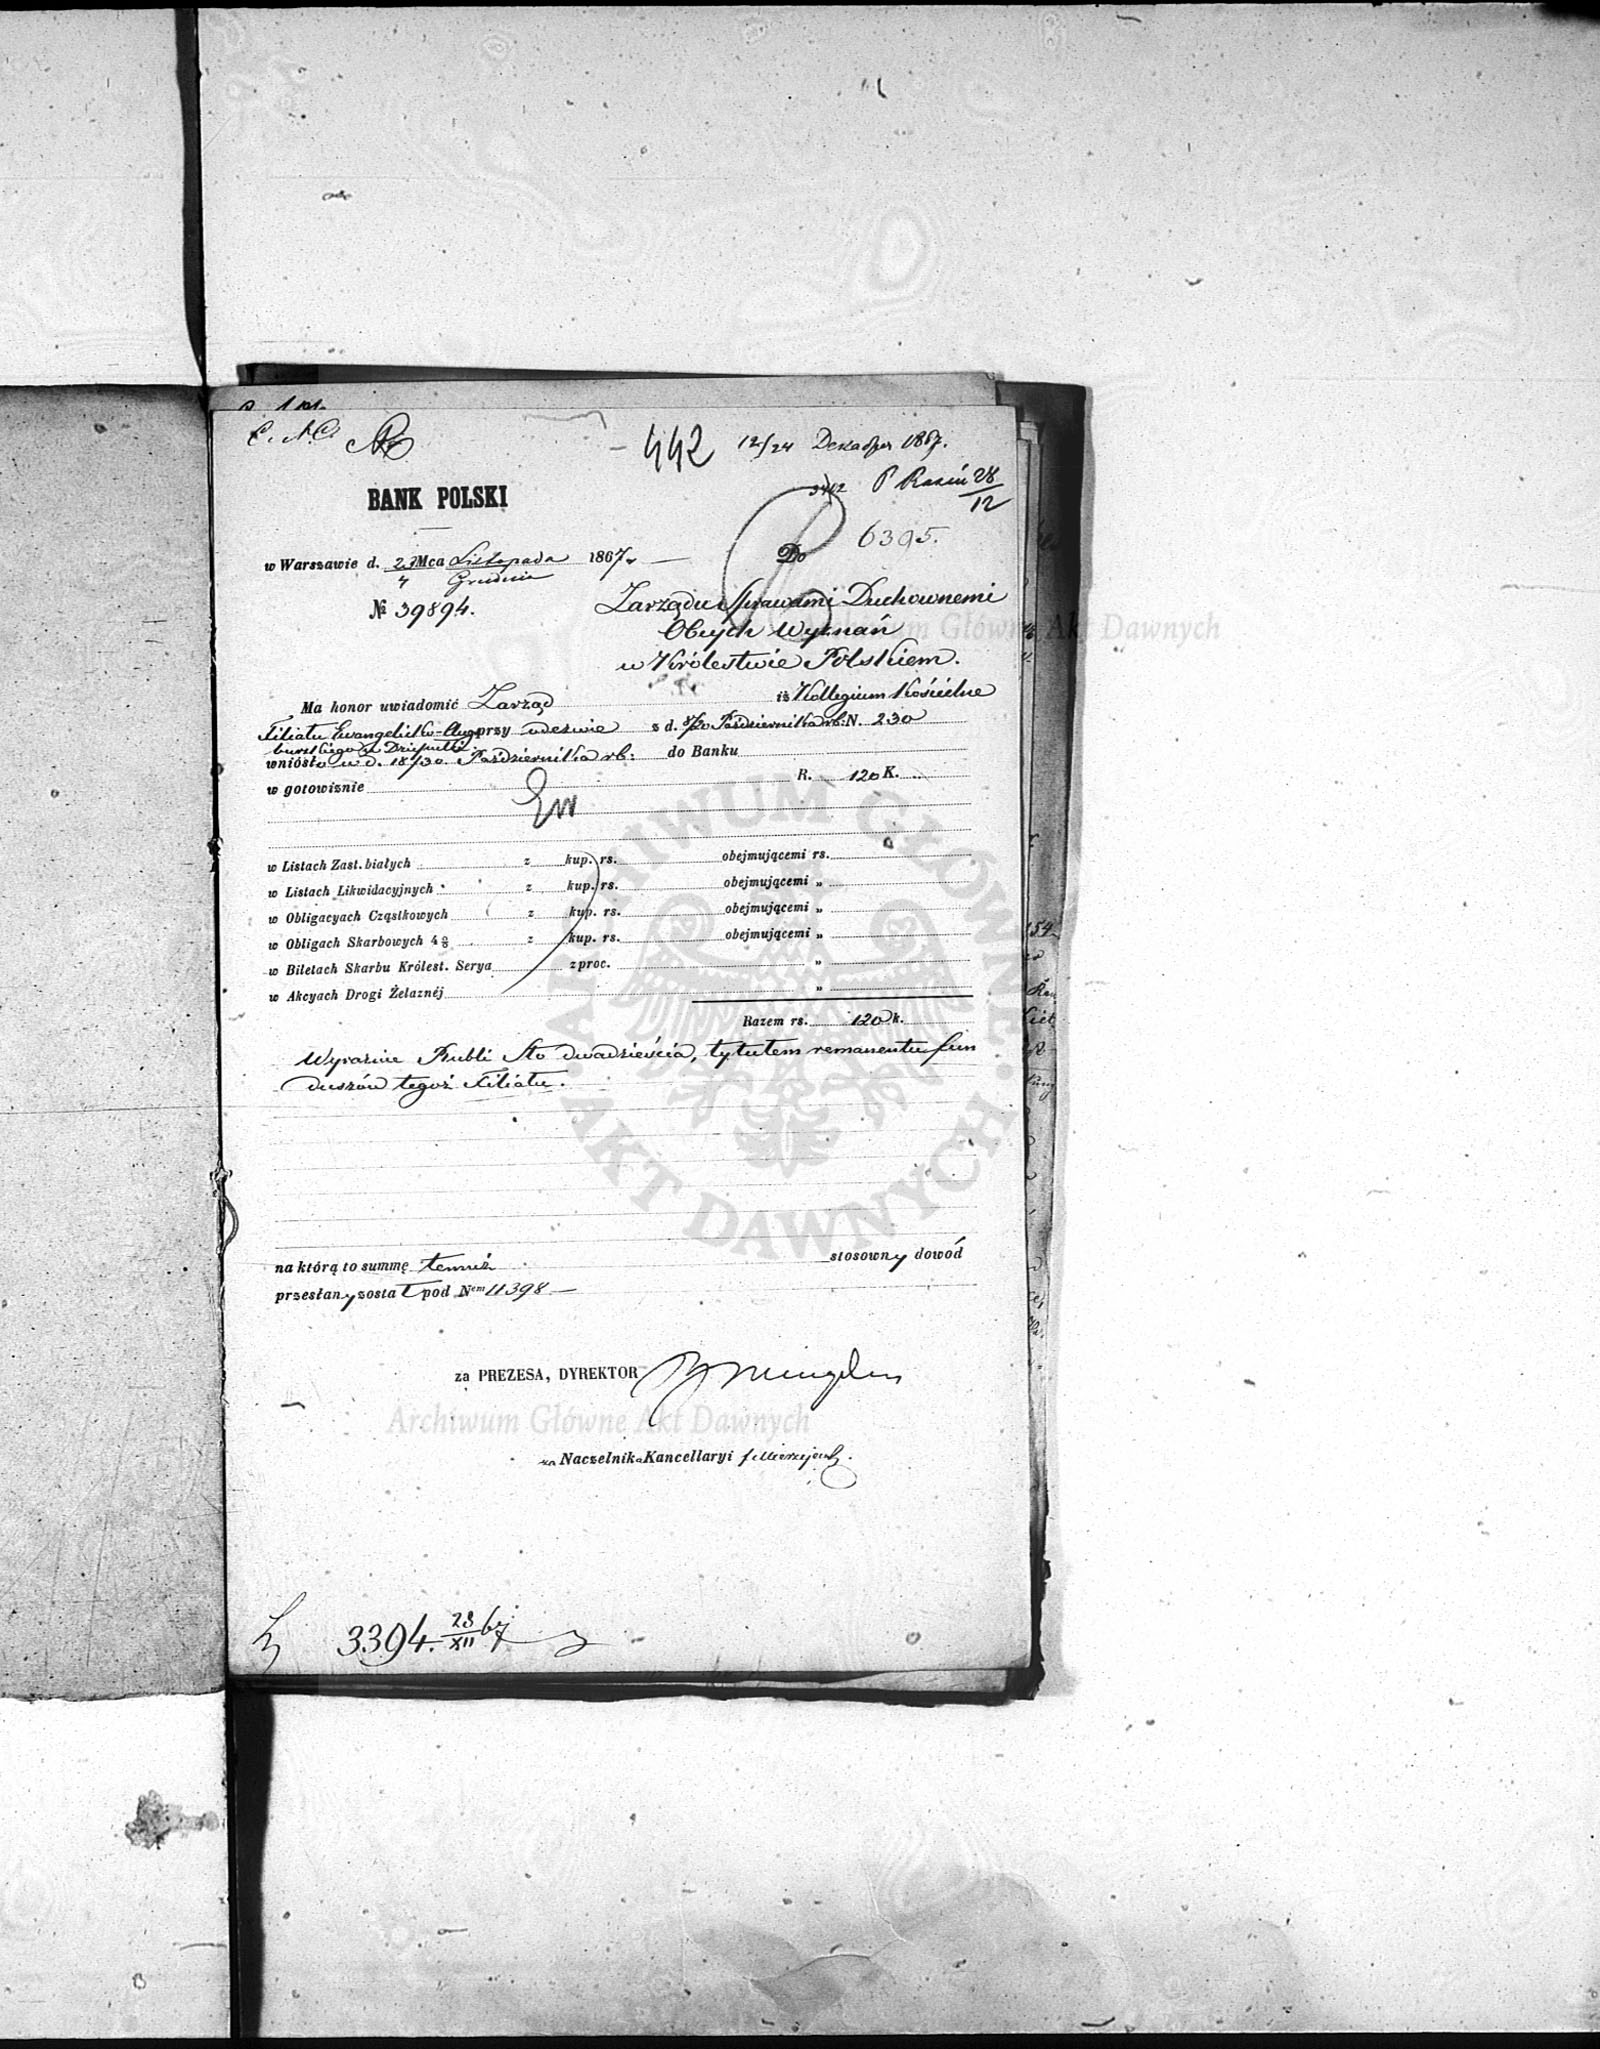 442 12/24 Декабря 1867.
28/12
6395.
BANK POLSKI
w Warszawie d. 23/4 Mca Listopada/Grudnia 1867r
Do
№ 39894.
Zarządu Sprawami Duchownemi
Obcych Wyznań
w Królestwie Polskiem.
Archiwum Główne Akt Dawnych
Ma honor uwiadomić Zarząd iż Kollegium Kościelne
Filiału Ewangelicko-Augs przy odezwie z d. 8/20 Października rb: N. 230
burskiego w
wniósło w d. 18/30 Października rb: do Banku
w gotowiznie R. 120 K.
w Listach Zast. białych z kup. rs. obejmującemi rs.
w Listach Likwidacyjnych z kup. rs. obejmującemi „
w Obligacyach Cząstkowych z kup. rs. obejmującemi „
w Obligach Skarbowych 4% z kup. rs. obejmującemi „
w Biletach Skarbu Królest. Serya z proc. „
w Akcyach Drogi Żelaznéj „
Razem rs. 120 k.
Wyraźnie Rubli Sto dwadzieścia, tytułem remanentu fun
duszów tegoż Filiału.
ARCHIWUM GŁÓWNE AKT DAWNYCH
na którą to summę temuż stosowny dowód
przesłany został pod Nem 11398
za PREZESA, DYREKTOR
Archiwum Główne Akt Dawnych
za Naczelnika Kancellaryi
3394. 28/XII 67